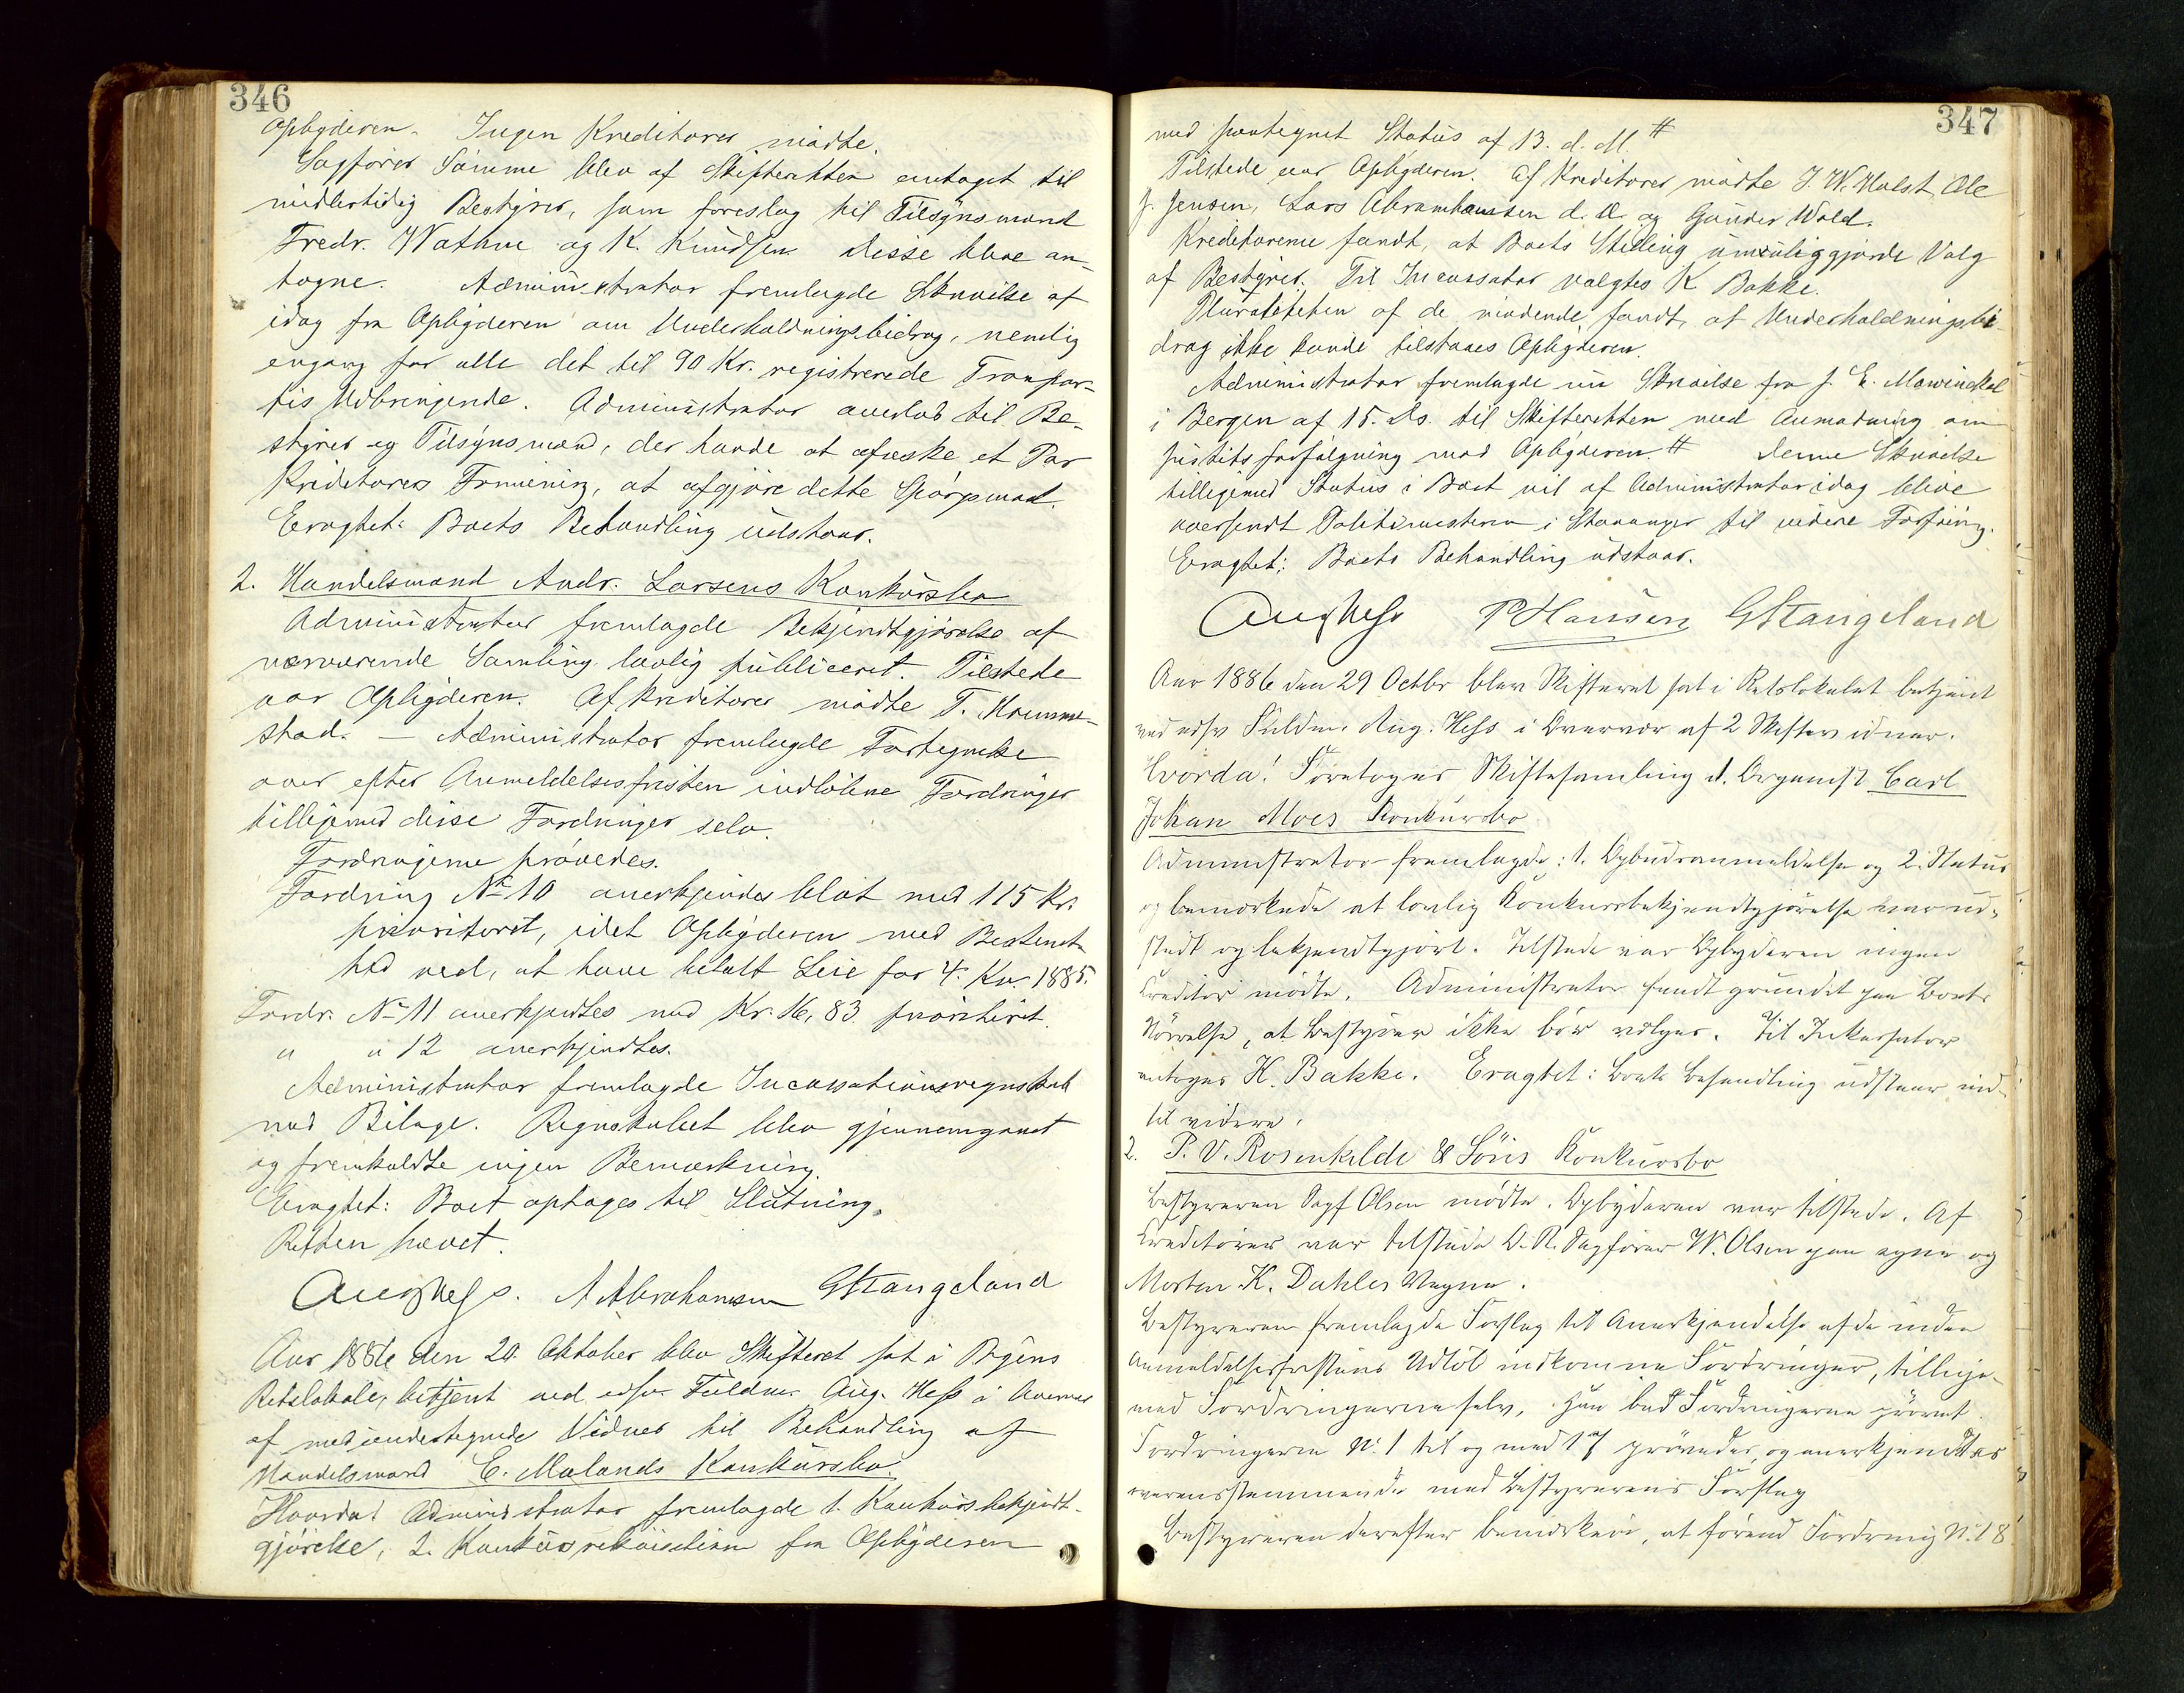 346
Opbyderen. Ingen Kreditorer mødte.
Sagfører Sømme blev af Skifteretten antaget til
midlertidig Bestyrer, som foreslog til Tilsynsmænd
Fredr. Wathne og K. Knudsen. Disse blive an-
tagne. Administrator fremlagde Skrivelse af
idag fra Opbyderen om Underholdningsbidrag, nemlig
engang for alle det til 90 Kr. registrerede
Udbringende. Administrator overlod til Be-
styrer og Tilsynsmænd, der havde at afæske et Par
Kreditorers Formening, at afgjøre dette Spørgsmaal.
Eragtet: Boets Behandling udstaar.
2. Handelsmand Andr. Larsens Konkursbo
Administrator fremlagde Bekjendtgjørelse af
nærværende Samling lovlig publiceret. Tilstede
var Opbyderen. Af Kreditorer mødte T.
stad. — Administrator fremlagde Fortegnelse
over efter Anmeldelsesfristen indløbne Fordringer
tilligemed disse Fordringer selv.
Fordringerne prøvedes.
Fordring No 10 anerkjendes blot med 115 Kr.
prioriteret, idet Opbyderen med Bestemt-
hed ved, at have betalt Leie for 4. Kv. 1885.
Fordr. No 11 anerkjendtes med Kr. 16,83 prioriteret.
" " 12 anerkjendtes.
Administrator fremlagde Incassationsregnskab
med Bilage. Regnskabet blev gjennemgaaet
og fremkaldte ingen Bemærkning.
Eragtet: Boet optages til Slutning.
Retten hævet.
Aug Hess. A Abrahamsen GStangeland
Aar 1886 den 20. Oktober blev Skifteret sat i Byens
Retslokale, betjent ved edsv. Fuldm. Aug. Hess i Overvær
af medundertegnede Vidner til Behandling af
Handelsmand E. Malands Konkursbo.
Hvorda! Administrator fremlagde 1. Konkursbekjendt-
gjørelse, 2. Konkursrekvisition fra Opbyderen
347
med paategnet Status af 13. d. M. #
Tilstede var Opbyderen. Af Kreditorer mødte J. W. Holst, Ole
J. Jensen, Lars Abrahamsen d. Æ. og Gunder Wold.
Kreditorerne fandt, at Boets Stilling umuliggjorde Valg
af Bestyrer. Til Incassator valgtes K Bakke.
Pluraliteten af de mødende fandt, at Underholdningsbi-
drag ikke kunde tilstaaes Opbyderen.
Administrator fremlagde nu Skrivelse fra J. E. Mowinckel
i Bergen af 15. ds. til Skifteretten med Anmodning om
Justitsforfølgning mod Opbyderen. # Denne Skrivelse
tilligemed Status i Boet vil af Administrator idag blive
oversendt Politimesteren i Stavanger til videre Forføining.
Eragtet: Boets Behandling udstaar.
Aug Hess P Hansen GStangeland
Aar 1886 den 29 Octbr blev Skifteret sat i Retslokalet betjent
ved edsv Fuldm. Aug. Hess i Overvær af 2 Skiftevidner.
Hvorda! Foretoges Skiftesamling i Organist Carl
Johan Moes Konkursbo
Administrator fremlagde: 1. Opbudsanmeldelse og 2. Status
og bemærkede at lovlig Konkursbekjendtgjørelse var ud-
stedt og bekjendtgjort. Tilstede var Opbyderen ingen
Creditor mødte. Administrator fandt grundet paa Boets
Størrelse, at Bestyrer ikke bør vælges. Til Inkassator
antoges K. Bakke. Eragtet: Boets Behandling udstaar ind-
til videre.
2. P. V. Rosenkilde & Søns Konkursbo
Bestyreren Sagf Olsen mødte. Opbyderen var tilstede. Af
Creditorer var tilstede O. R. Sagfører W. Olsen paa egne og
Morten K. Dahles Vegne.
Bestyreren fremlagde Forslag til Anerkjendelse af de inden
Anmeldelsesfristens Udløb indkomne Fordringer, tillige-
med Fordringerne selv. Han bad Fordringerne prøvet.
Fordringerne No. 1 til og med 17 prøvedes, og anerkjendtes
overensstemmende med Bestyrerens Forslag
Bestyreren derefter bemærkede, at forsaavidt Fordring No. 18